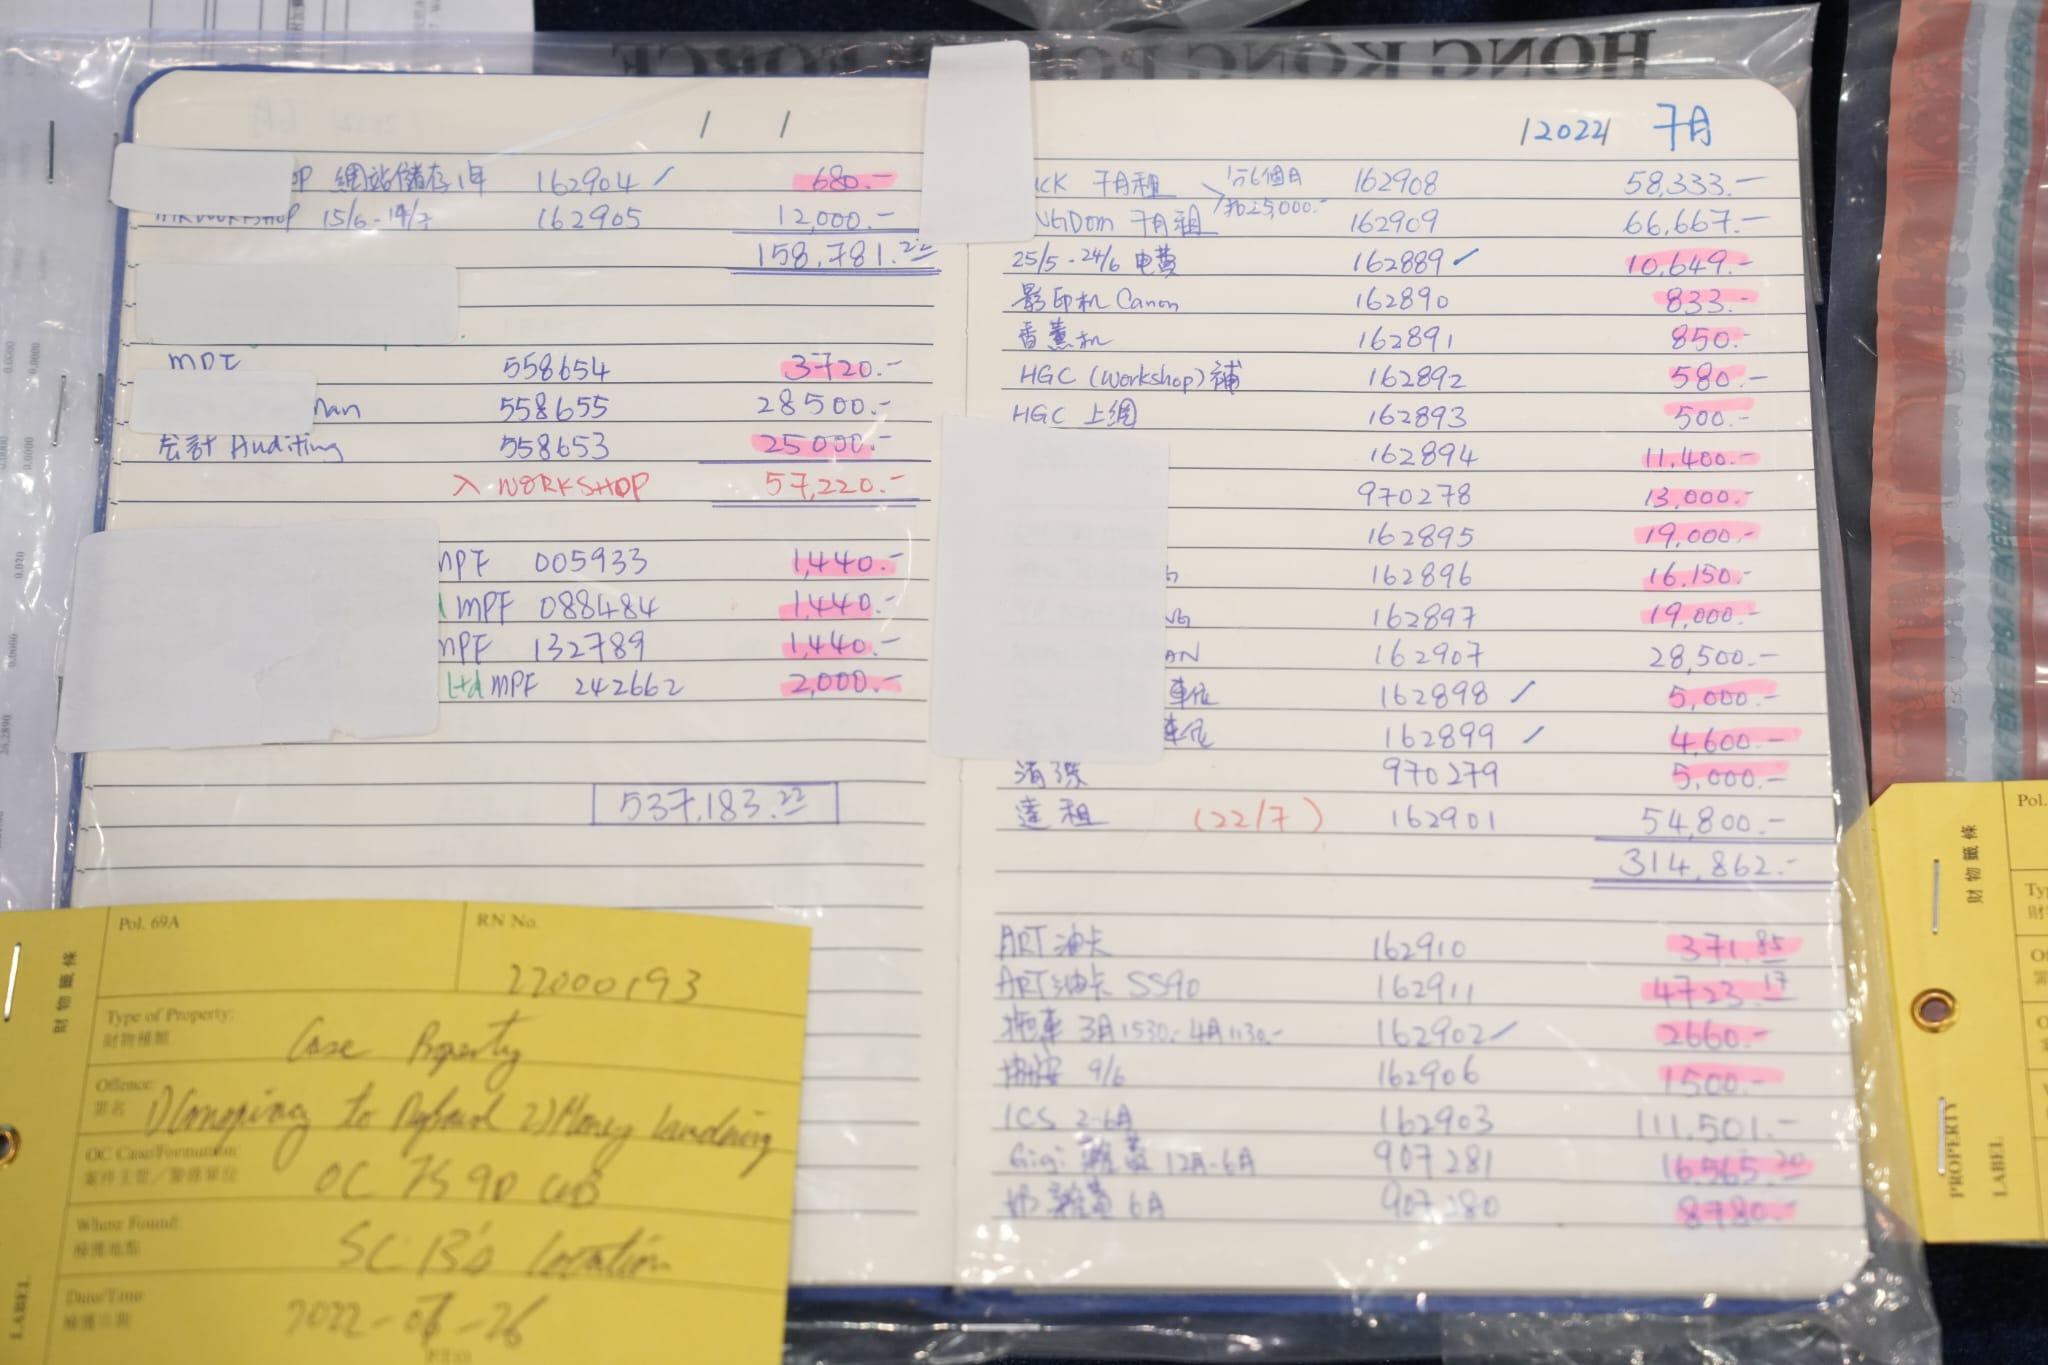 HONG KONG POLICE FORCE
/ /
OP 網站儲存1年 162904 ✓ 680.-
WORKSHOP 15/6-14/7 162905 12,000.-
158,781.22
MPF 558654 3720.-
man 558655 28500.-
会計 Auditing 558653 25000.-
入 WORKSHOP 57,220.-
MPF 005933 1,440.-
d MPF 088484 1,440.-
MPF 132789 1,440.-
Ltd MPF 242662 2,000.-
537,183.22
/2022/ 7月
CK 7月租 162908 58,333.-
1方6個月
25,000.-
NGDOM 7月租 162909 66,667.-
25/5-24/6 电費 162889 ✓ 10,649.-
影印机 Canon 162890 833.-
香薰机 162891 850.-
HGC (Workshop) 補 162892 580.-
HGC 上網 162893 500.-
162894 11,400.-
970278 13,000.-
162895 19,000.-
G 162896 16,150.-
NG 162897 19,000.-
AN 162907 28,500.-
車位 162898 ✓ 5,000.-
車位 162899 ✓ 4,600.-
清潔 970279 5,000.-
達租 (22/7) 162901 54,800.-
314,862.-
ART 油卡 162910 371.85
ART 油卡 SS90 162911 4723.17
拖車 3月1530.- 4月1130.- 162902 ✓ 2660.-
9/6 162906 1500.-
ICS 2-6月 162903 111,501.-
Gigi 雜費 12月-6月 907281 16,565.20
雜費 6月 907280 8780.-
Pol. 69A
RN No.
22000193
財物籤條
LABEL
Type of Property:
財物種類
Case Property
Offence:
罪名
1) Conspiracy to Defraud 2) Money Laundering
OC Case/Formation:
案件主管／警務單位
Where Found:
檢獲地點
SC B's location
Date/Time
檢獲日期
2022-07-26
PTO
Pol.
財物籤條
PROPERTY
LABEL